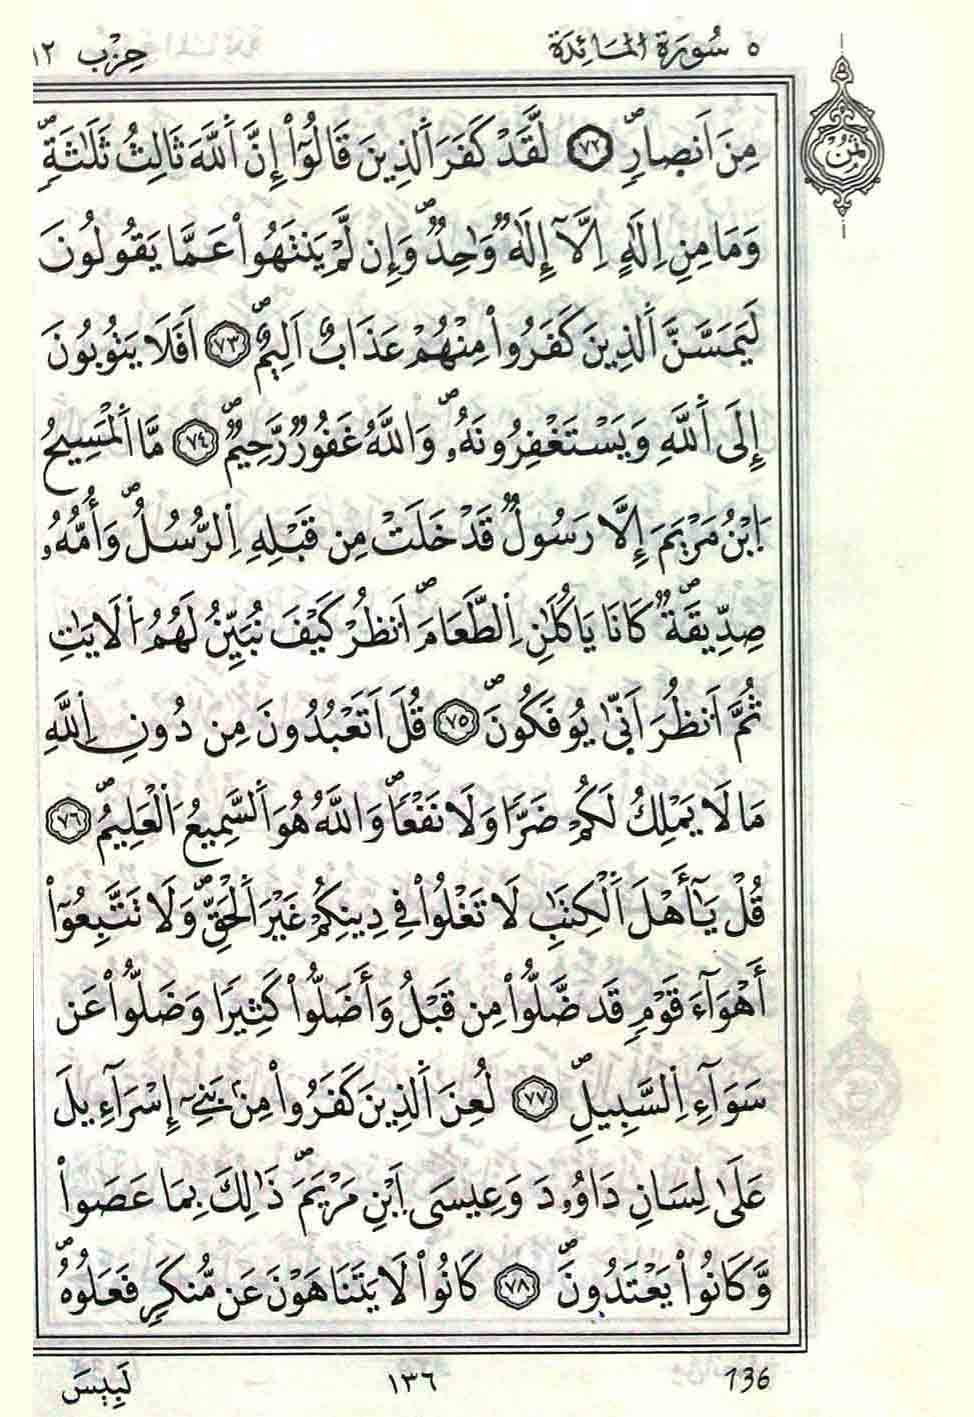 ٥ سُورَةُ الْمَائِدَةِ حِزْب ١٢
ثُمُنْ
مِنَ اَنصارٍۖ ٧٢ لَّقَدْ كَفَرَ اَ۬لذِينَ قَالُوٓاْ إِنَّ اَ۬للَّهَ ثَالِثُ ثَلَٰثَةٖۖ
وَمَا مِنِ اِلَٰهٍ اِلَّآ إِلَٰهٞ وَٰحِدٞۖ وَإِن لَّمْ يَنتَهُواْ عَمَّا يَقُولُونَ
لَيَمَسَّنَّ اَ۬لذِينَ كَفَرُواْ مِنْهُمْ عَذَابٌ اَلِيمٌۖ ٧٣ اَفَلَا يَتُوبُونَ
إِلَى اَ۬للَّهِ وَيَسْتَغْفِرُونَهُۥۖ وَاللَّهُ غَفُورٞ رَّحِيمٞۖ ٧٤ مَّا اَ۬لْمَسِيحُ
اُ۪بْنُ مَرْيَمَ إِلَّا رَسُولٞ قَدْ خَلَتْ مِن قَبْلِهِ اِ۬لرُّسُلُۖ وَأُمُّهُۥ
صِدِّيقَةٞۖ كَانَا يَاكُلَٰنِ اِ۬لطَّعَامَۖ اَ۟نظُرْ كَيْفَ نُبَيِّنُ لَهُمُ اُ۬لَايَٰتِ
ثُمَّ اَ۟نظُرَ اَنّ۪يٰ يُوفَكُونَۖ ٧٥ قُلَ اَتَعْبُدُونَ مِن دُونِ اِ۬للَّهِ
مَا لَا يَمْلِكُ لَكُمْ ضَرّاٗ وَلَا نَفْعاٗۖ وَاللَّهُ هُوَ اَ۬لسَّمِيعُ اُ۬لْعَلِيمُۖ ٧٦
قُلْ يَٰٓأَهْلَ اَ۬لْكِتَٰبِ لَا تَغْلُواْ فِي دِينِكُمْ غَيْرَ اَ۬لْحَقِّۖ وَلَا تَتَّبِعُوٓاْ
أَهْوَآءَ قَوْمٖ قَد ضَّلُّواْ مِن قَبْلُ وَأَضَلُّواْ كَثِيراٗ وَضَلُّواْ عَن
سَوَآءِ اِ۬لسَّبِيلِۖ ٧٧ لُعِنَ اَ۬لذِينَ كَفَرُواْ مِنۢ بَنِےٓ إِسْرَآءِيلَ
عَلَىٰ لِسَانِ دَاوُۥدَ وَعِيسَى اَ۪بْنِ مَرْيَمَۖ ذَٰلِكَ بِمَا عَصَواْ
وَّكَانُواْ يَعْتَدُونَۖ ٧٨ كَانُواْ لَا يَتَنَاهَوْنَ عَن مُّنكَرٖ فَعَلُوهُۖ
136 ١٣٦ لَبِيسَ